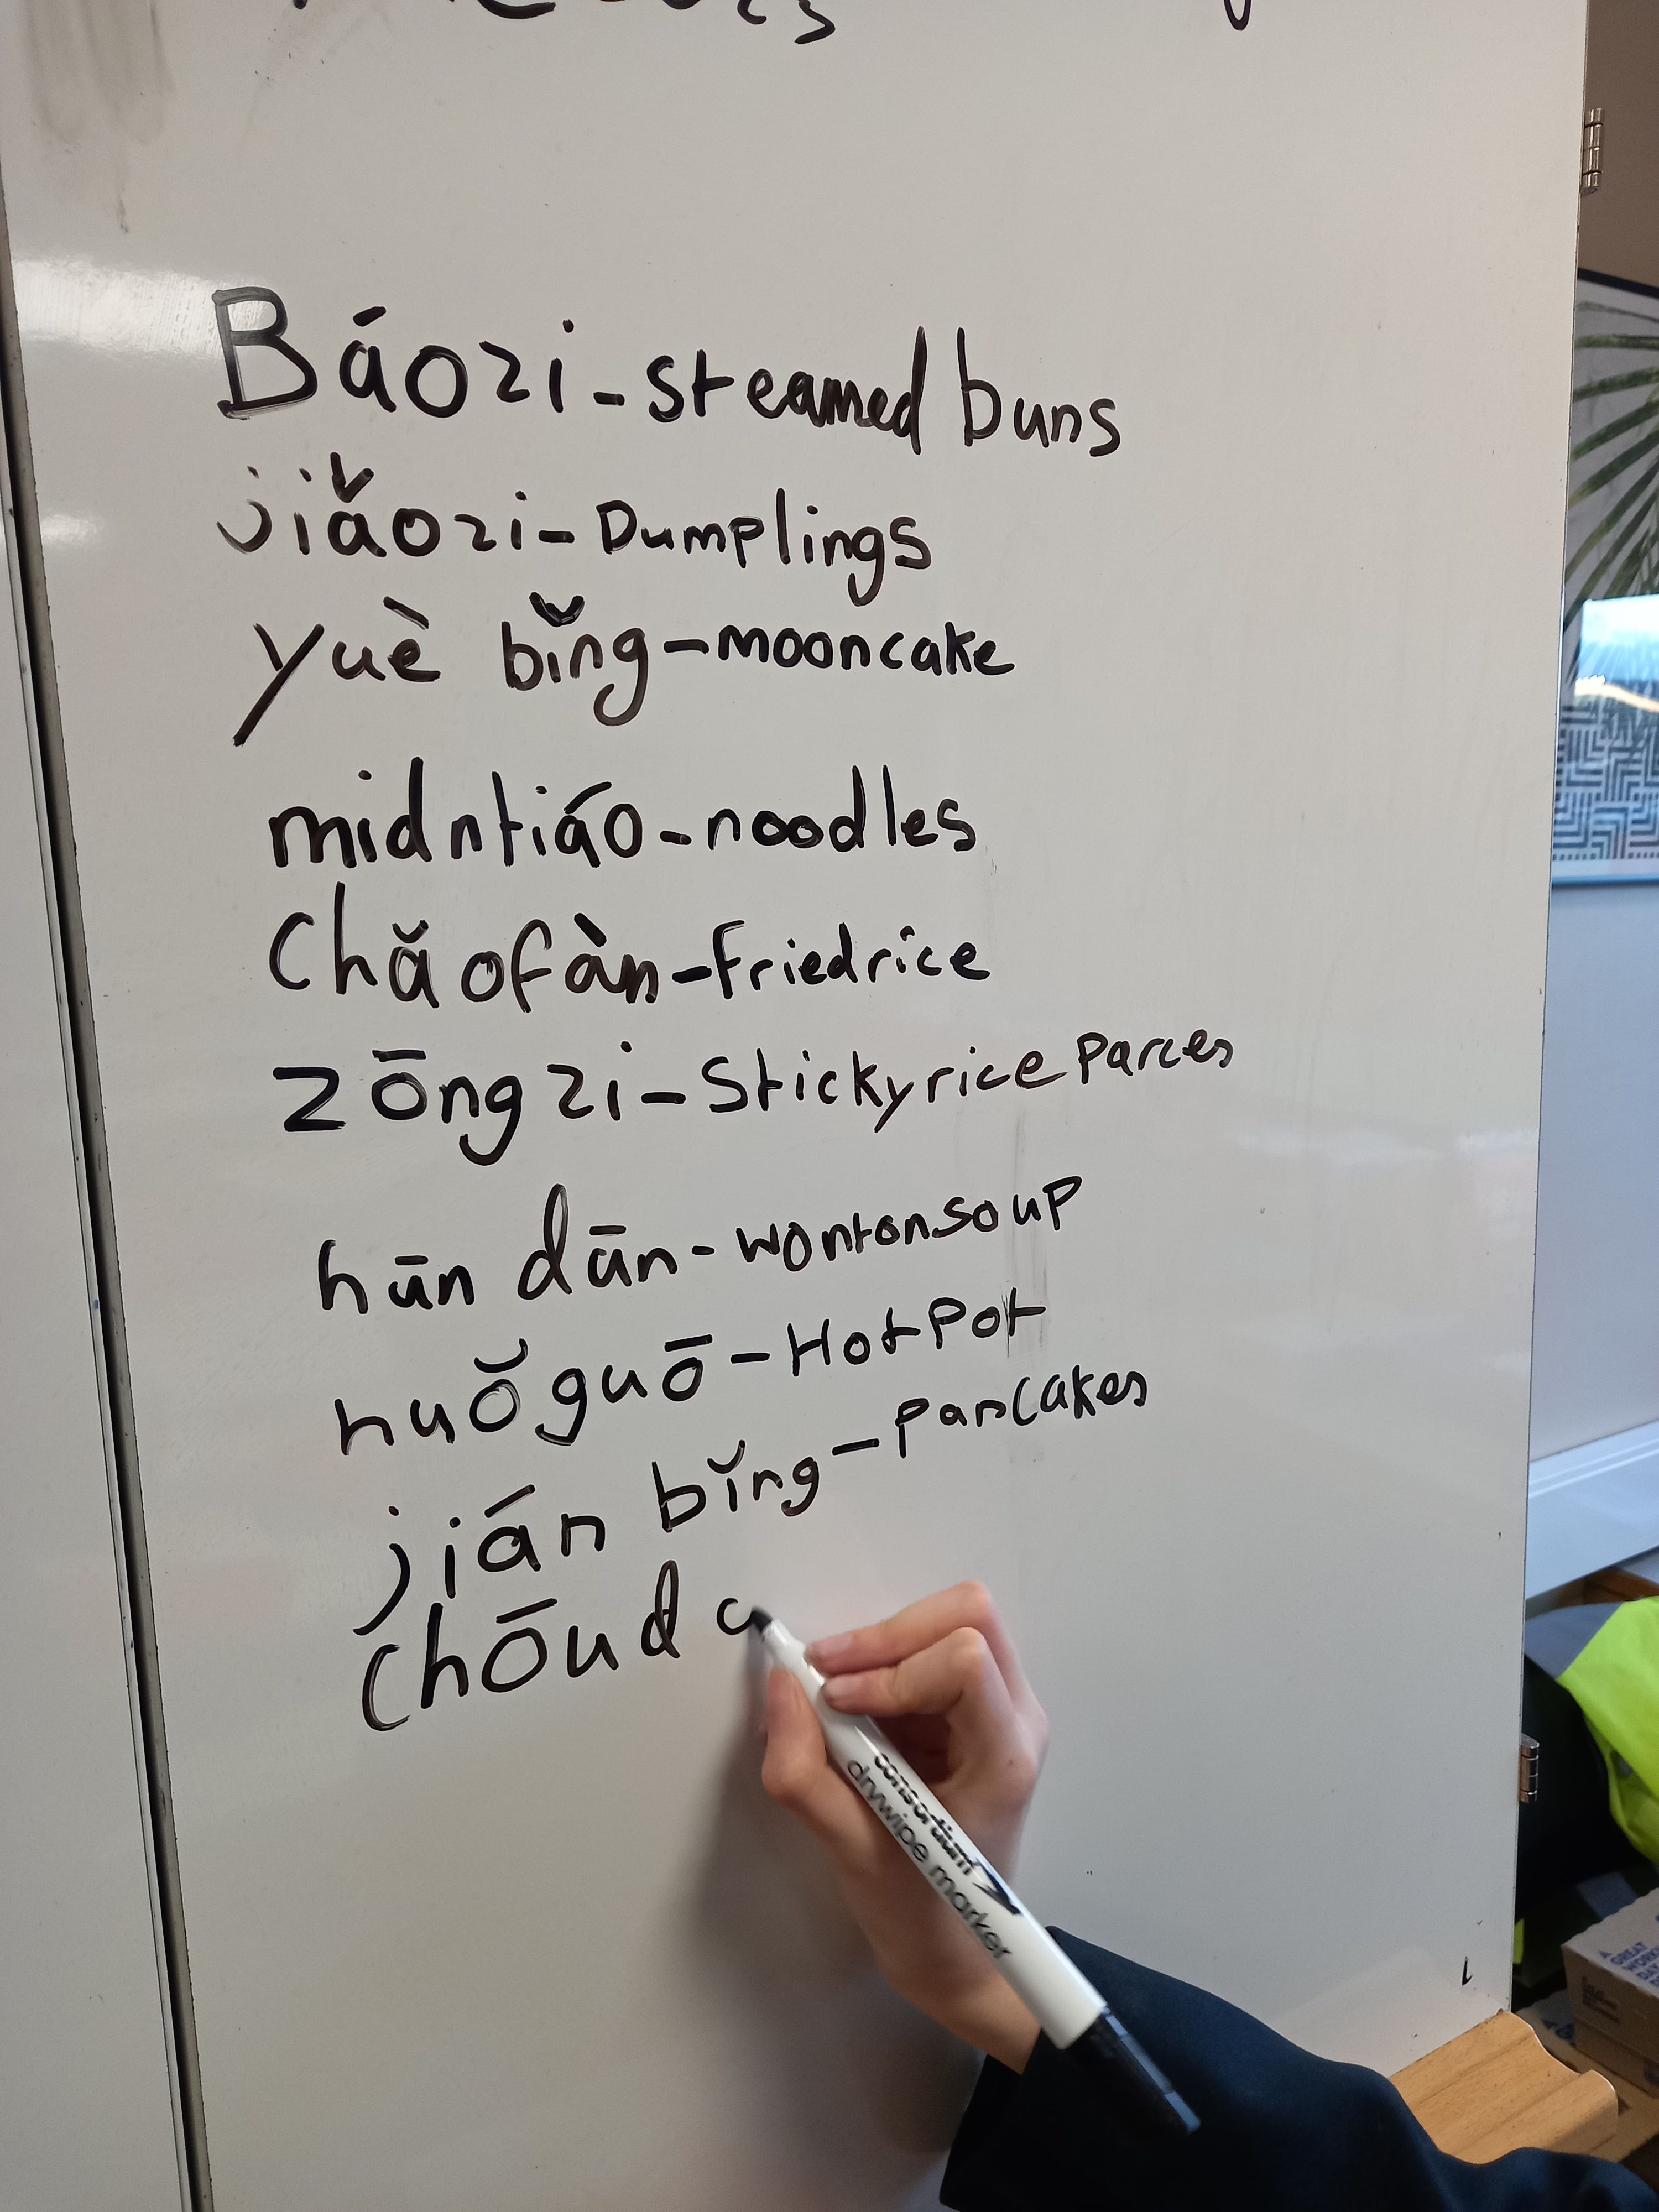 Báozi - steamed buns
jiǎozi - Dumplings
yuè bǐng - mooncake
midntiáo - noodles
Chǎofàn - friedrice
zōngzi - Stickyrice Parces
hūn dūn - wontonsoup
huǒguō - HotPot
jián bǐng - Pancakes
chōud
consortium
drywipe marker
A
GREAT